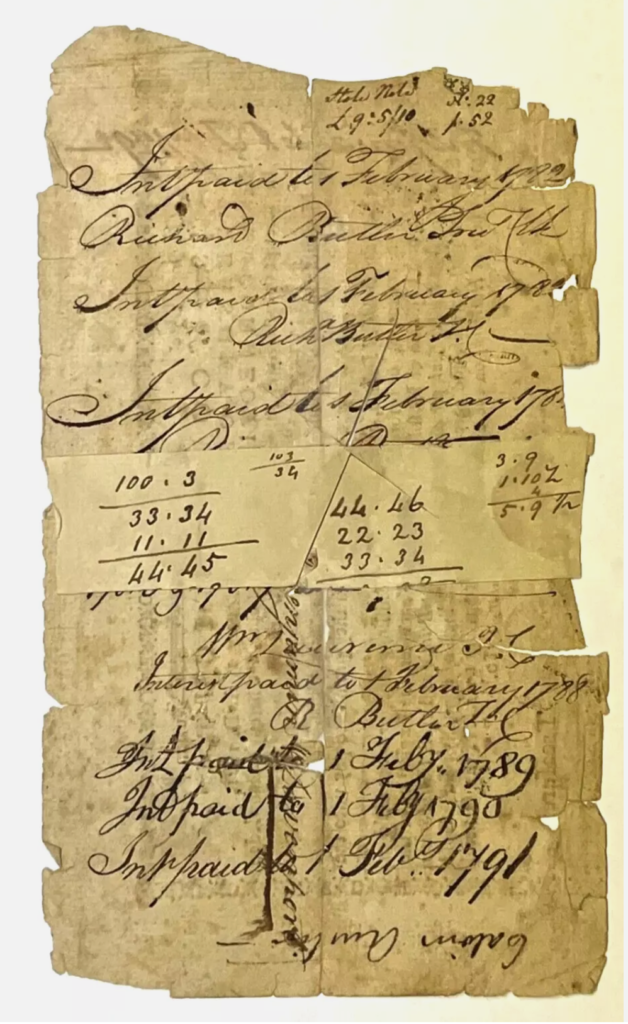 State Note № 22
£ 9:5/10 p. 52
Int paid to 1 February 1782
Richard Butler
Int paid to 1 February 178
Richd Butler T. C
Int paid to 1 February 178
103
34
3.9
100.3
1.10
4
5.9
33.34
11.11
44.45
44.46
22.23
33.34
Wm Lawrence T. C
Interest paid to 1 February 1788
R Butler T C
Int paid to 1 Feby. 1789
Int paid to 1 Feby 1790
Int paid to 1 Feby. 1791
Calvin Austin